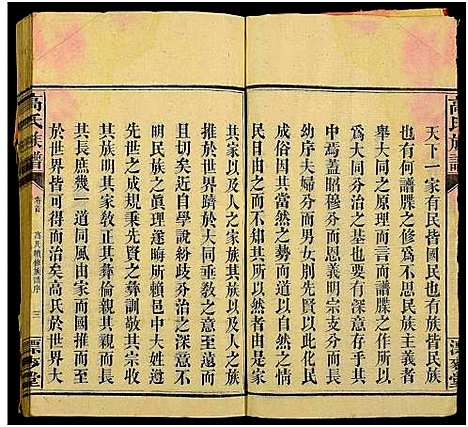 高氏族譜
天下一家有民皆國民也有族皆民族
也有何譜牒之修為不思民族主義者
舉大同之原理而言而譜牒之修不過
為大同分治之基也要有深意存乎其
中焉蓋昭穆分而恩義明宗支序而長
幼序夫婦分而男女別先賢以此化民
成俗因其當然之勢而道以固然之天
民日由之而不知其所以然者然
其家以及人之家族其族以及人之族
推於世界躋於大同垂教之意至遠而
且切矣近自學說紛歧分治之深意不
明民族之真理遂晦所賴邑中大姓遵
先哲之成規秉先賢之彝訓敬其宗收
其族明其家教正其彝倫親其親而長
其長庶幾一道同風由家而國推而至
於世界皆可得而治矣高氏於世界大
高氏族譜
卷首
高氏續修族譜序
三
堂
堂